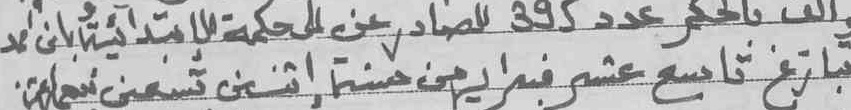 والحكم عدد 395 الصادر عن المحكمة الابتدائية بان احمد
بتاريخ تاسع عشر فبراير من سنة اثنين تسعين تسعمائة